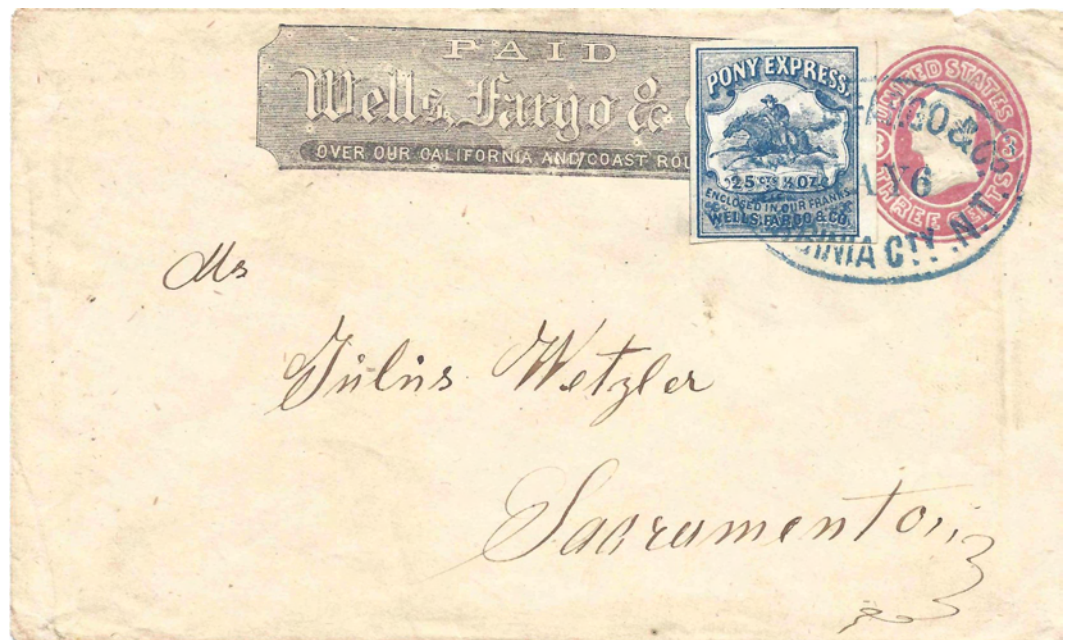 PAID
Wells, Fargo & C
OVER OUR CALIFORNIA AND COAST ROU
PONY EXPRESS.
25 CTS ½ OZ.
ENCLOSED IN OUR FRANKS
WELLS, FARGO & CO.
UNITED STATES
3 3
THREE CENTS
FARGO & CO
JAN 6
GINIA CTY N.T.
Mr
Julius Wetzler
Sacramento